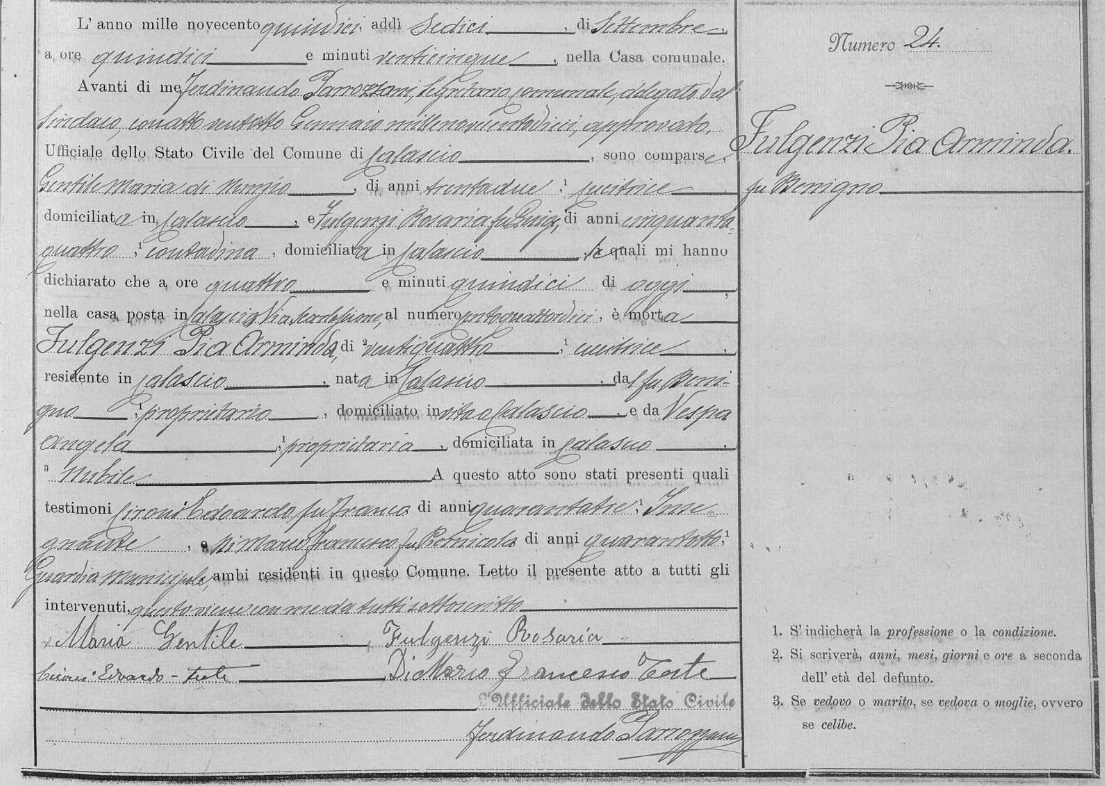 L'anno mille novecento quindici, addì Sedici, di Settembre
a ore quindici e minuti venticinque, nella Casa comunale.
Avanti di me Ferdinando Parrozzani, Segretario comunale, delegato dal
Sindaco, con atto ventotto Gennaio millenovecentodieci, approvato,
Ufficiale dello Stato Civile del Comune di Calascio, sono comparse
Gentile Maria di Nunzio, di anni trentadue, cucitrice
domiciliata in Calascio, e Fulgenzi Rosaria fu Luigi, di anni cinquanta-
quattro, contadina, domiciliata in Calascio, le quali mi hanno
dichiarato che a ore quattro e minuti quindici di oggi,
nella casa posta in Calascio Via al numero, è morta
Fulgenzi Pia Arminda, di ventiquattro, cucitrice
residente in Calascio, nata in Calascio, dal fu Beni-
gno, proprietario, domiciliato in vita a Calascio e da Vespa
Angela, proprietaria, domiciliata in Calascio.
3 Nubile A questo atto sono stati presenti quali
testimoni Edoardo, fu Franco di anni quarantatre, Inse-
gnante, e Di Mario Francesco fu Bernicola di anni quarantotto,
Guardia Municipale, ambi residenti in questo Comune. Letto il presente atto a tutti gli
intervenuti, questo viene con me da tutti sottoscritto
Maria Gentile, Fulgenzi Rosaria
Edoardo - teste Di Mario Francesco Teste
L'Ufficiale dello Stato Civile
Ferdinando Parrozzani
Numero 24.
Fulgenzi Pia Arminda.
fu Benigno
1. S'indicherà la professione o la condizione.
2. Si scriverà, anni, mesi, giorni e ore a seconda
dell'età del defunto.
3. Se vedovo o marito, se vedova o moglie, ovvero
se celibe.